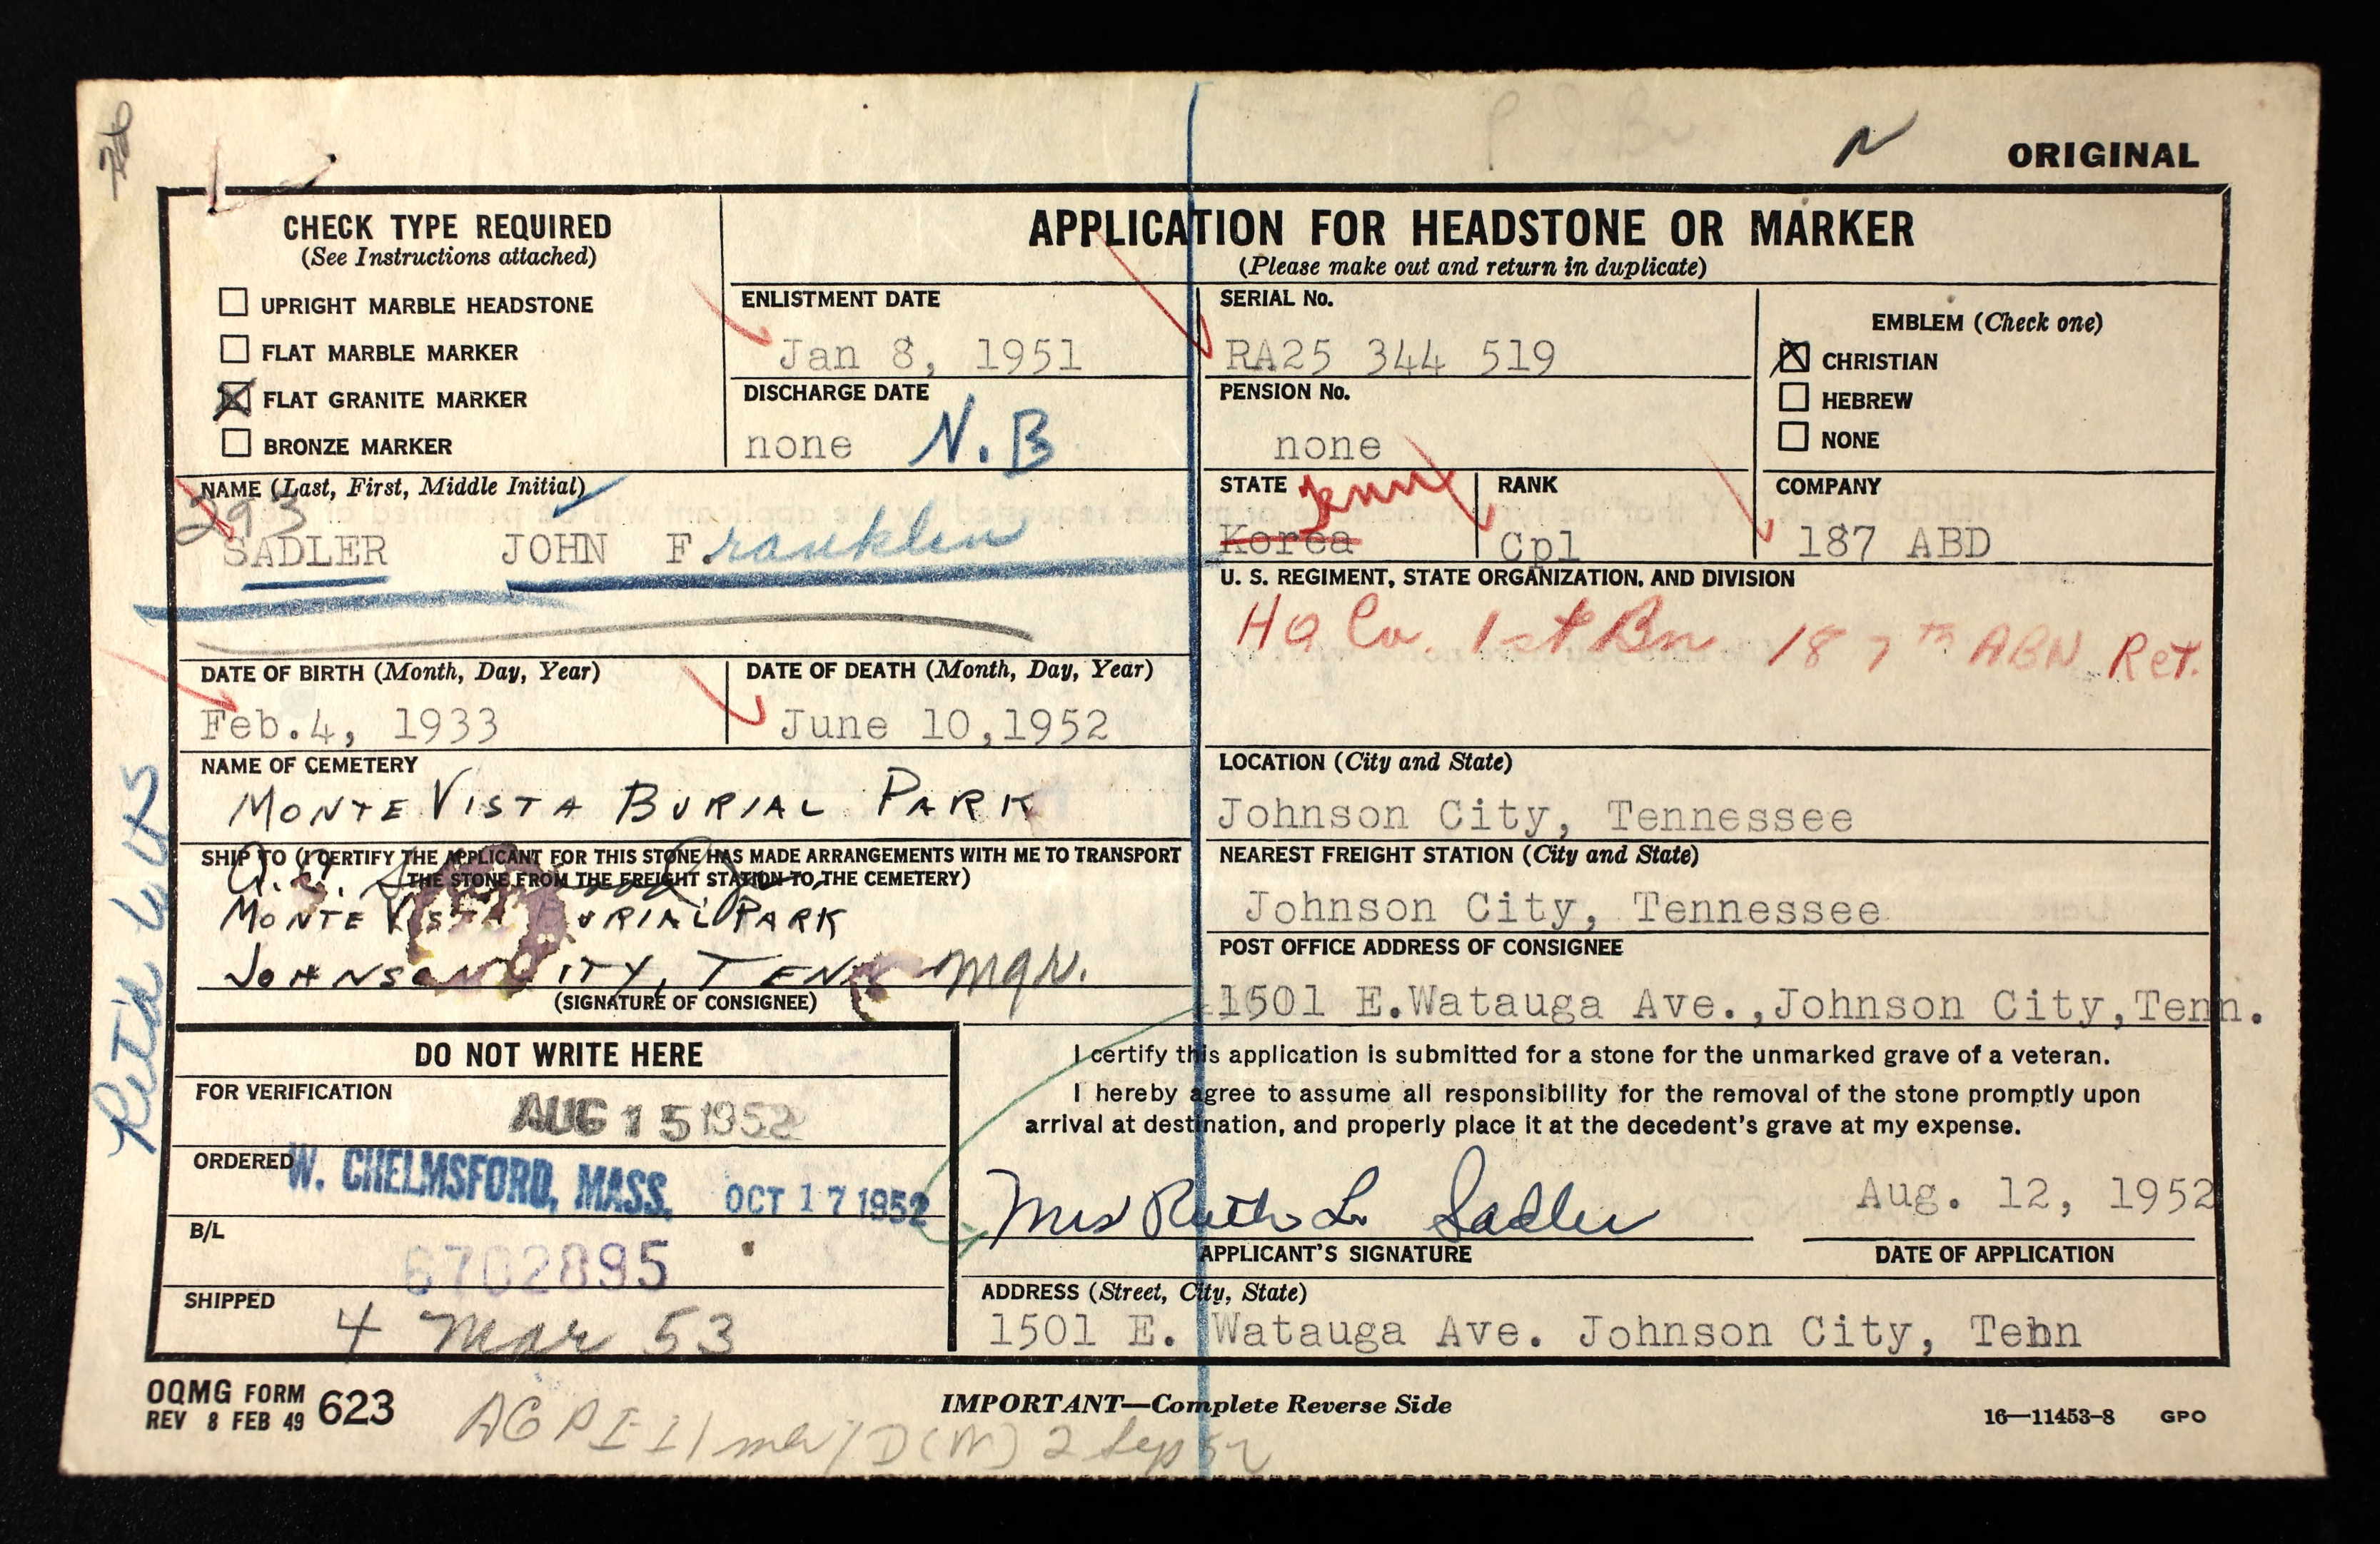 N ORIGINAL
CHECK TYPE REQUIRED
(See Instructions attached)
UPRIGHT MARBLE HEADSTONE
FLAT MARBLE MARKER
FLAT GRANITE MARKER
BRONZE MARKER
APPLICATION FOR HEADSTONE OR MARKER
(Please make out and return in duplicate)
ENLISTMENT DATE
Jan 8, 1951
SERIAL No.
RA25 344 519
EMBLEM (Check one)
CHRISTIAN
HEBREW
NONE
DISCHARGE DATE
none N.B
PENSION No.
none
NAME (Last, First, Middle Initial)
293
SADLER JOHN Franklin
STATE Tenn
Korea
RANK
Cpl
COMPANY
187 ABD
U. S. REGIMENT, STATE ORGANIZATION, AND DIVISION
HQ Co. 1st Bn 187TH ABN Rct.
DATE OF BIRTH (Month, Day, Year)
Feb.4, 1933
DATE OF DEATH (Month, Day, Year)
June 10,1952
NAME OF CEMETERY
MONTE VISTA BURIAL PARK
LOCATION (City and State)
Johnson City, Tennessee
SHIP TO (I CERTIFY THE APPLICANT FOR THIS STONE HAS MADE ARRANGEMENTS WITH ME TO TRANSPORT
THE STONE FROM THE FREIGHT STATION TO THE CEMETERY)
MONTE VISTA BURIAL PARK
JOHNSON CITY, TENN Mgr.
(SIGNATURE OF CONSIGNEE)
NEAREST FREIGHT STATION (City and State)
Johnson City, Tennessee
POST OFFICE ADDRESS OF CONSIGNEE
1501 E.Watauga Ave.,Johnson City,Tenn.
DO NOT WRITE HERE
FOR VERIFICATION
AUG 15 1952
ORDERED W. CHELMSFORD, MASS. OCT 17 1952
B/L
6702895
SHIPPED
4 Mar 53
I certify this application is submitted for a stone for the unmarked grave of a veteran.
I hereby agree to assume all responsibility for the removal of the stone promptly upon
arrival at destination, and properly place it at the decedent's grave at my expense.
Mrs Ruth L. Sadler Aug. 12, 1952
APPLICANT'S SIGNATURE DATE OF APPLICATION
ADDRESS (Street, City, State)
1501 E. Watauga Ave. Johnson City, Tenn
OQMG FORM 623
REV 8 FEB 49
IMPORTANT—Complete Reverse Side
16—11453-8 GPO
2 Sep 52